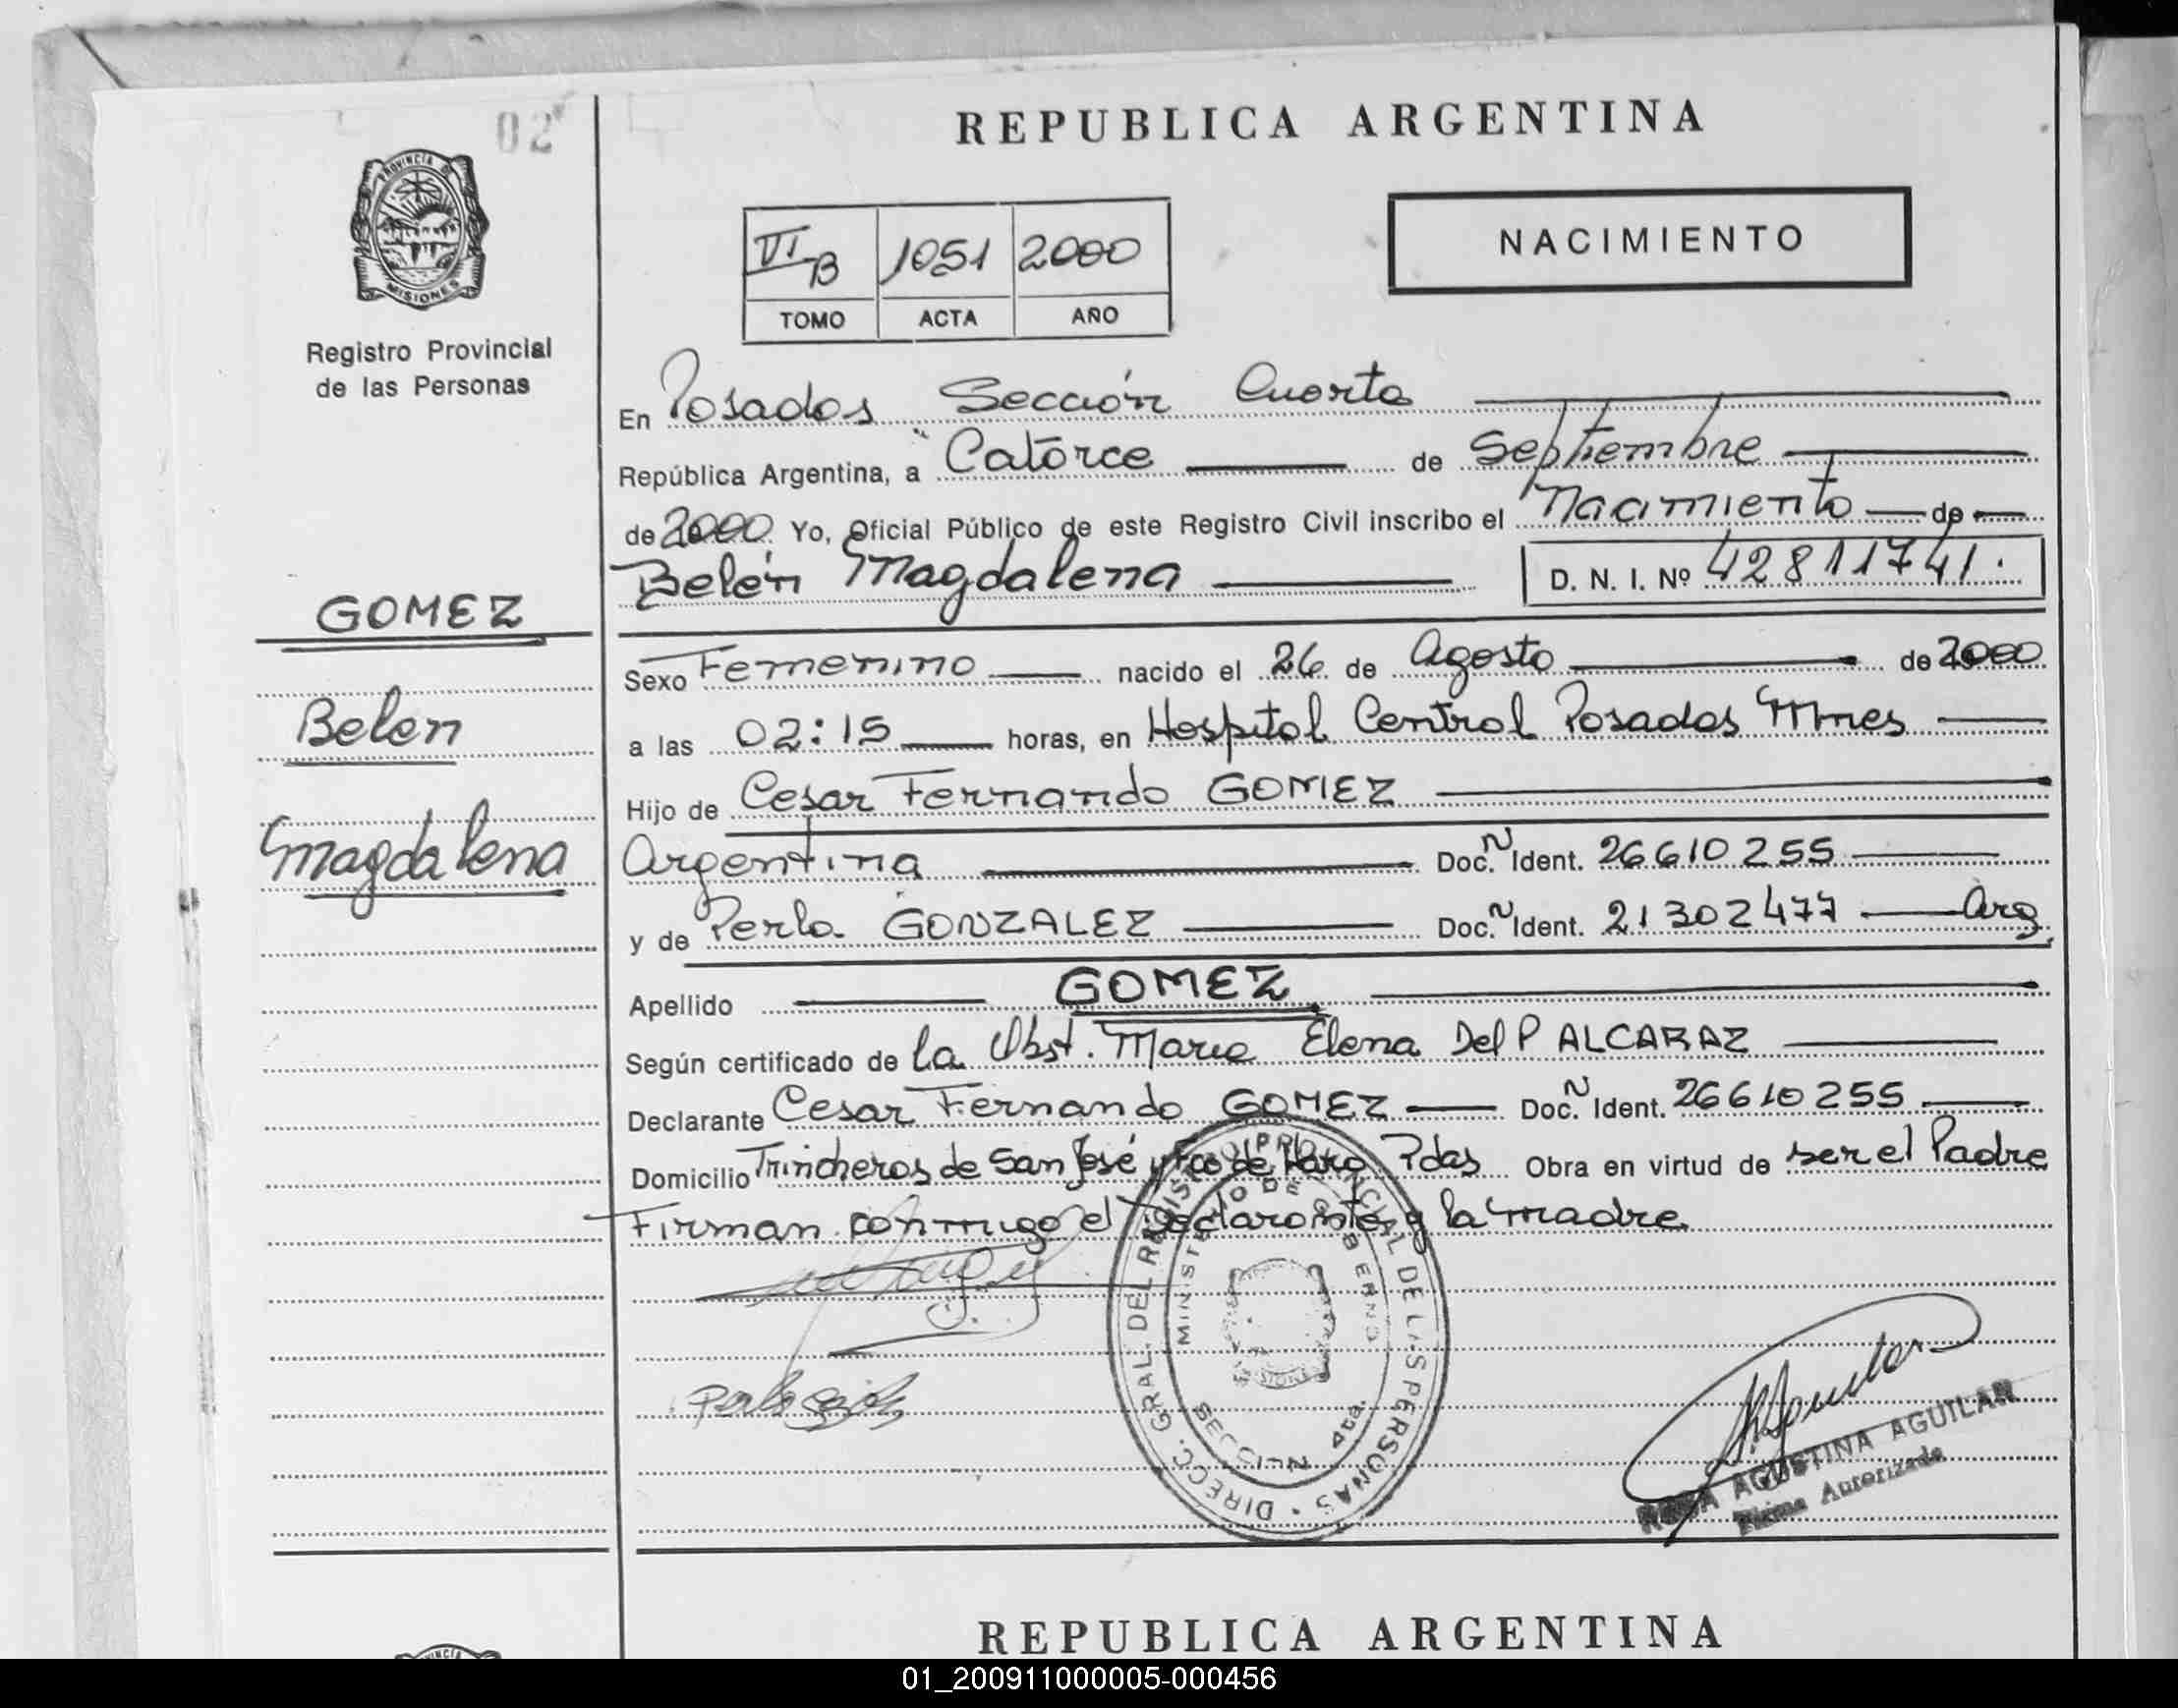 02
REPUBLICA ARGENTINA
PROVINCIA DE
MISIONES
Registro Provincial
de las Personas
VI B 1051 2000
TOMO ACTA AÑO
NACIMIENTO
En Posadas Sección Cuarta
República Argentina, a Catorce de Septiembre
de 2000 Yo, Oficial Público de este Registro Civil inscribo el Nacimiento de
Belén Magdalena D. N. I. Nº 42811741.
GOMEZ
Belen
Magdalena
Sexo Femenino nacido el 26 de Agosto de 2000
a las 02:15 horas, en Hospital Central Posadas Mnes
Hijo de Cesar Fernando GOMEZ
Argentina Doc. N Ident. 26610255
y de Perla GONZALEZ Doc. N Ident. 21302477 Arg
Apellido GOMEZ
Según certificado de La Obst. Maria Elena Del P ALCARAZ
Declarante Cesar Fernando GOMEZ Doc. N Ident. 26610255
Domicilio Trincheras de San José y Fco de Haro Pdas Obra en virtud de ser el Padre
Firman conmigo el Declarante y la madre
DIRECC. GRAL. DEL REGISTRO PROVINCIAL DE LAS PERSONAS
MINISTERIO DE GOBIERNO
SECCION 4ta.
AGUSTINA AGUILAR
Firma Autorizada
REPUBLICA ARGENTINA
01_200911000005-000456